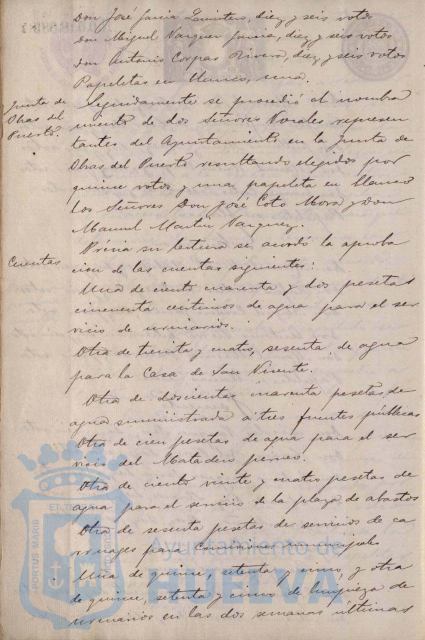 Don José García Quintero, diez y seis votos
Don Miguel Vazquez García, diez y seis votos
Don Antonio Corpas Rivera, diez y seis votos
Papeletas en blanco, una.
Junta de
Obras del
Puerto.
Seguidamente se procedió al nombra
miento de dos Señores Vocales represen
tantes del Ayuntamiento en la Junta de
Obras del Puerto resultando elegidos por
quince votos y una papeleta en blanco
los Señores Don José Coto Mora y Don
Manuel Martin Vazquez.
Cuentas
Prévia su lectura se acordó la aproba
cion de las cuentas siguientes:
Una de ciento cuarenta y dos pesetas
cincuenta centimos de agua para el ser
vicio de urinarios.
Otra de treinta y cuatro, sesenta, de agua
para la Casa de San Vicente.
Otra de doscientas cuarenta pesetas, de
agua suministrada a tres fuentes públicas
Otra de cien pesetas de agua para el ser
vicio del Matadero
Otra de ciento veinte y cuatro pesetas de
agua para el servicio de la plaza de abastos
Otra de sesenta pesetas de servicios de ca
rruages para
Una de quince, setenta y uno, y otra
de quince, setenta y cinco de limpieza de
urinarios en las dos semanas ultimas
PORTUS MARIS
Ayuntamiento de
HUELVA